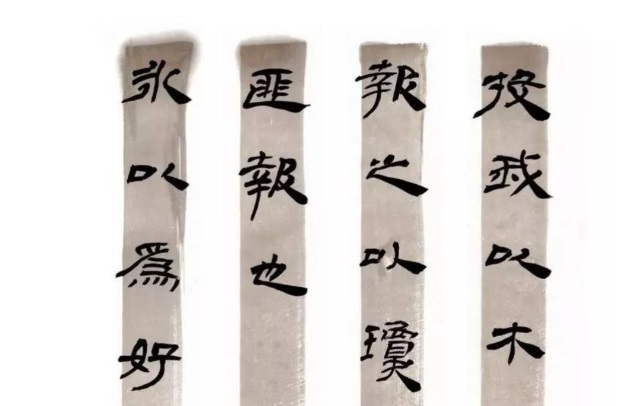 投我以木
報之以瓊
匪報也
永以爲好